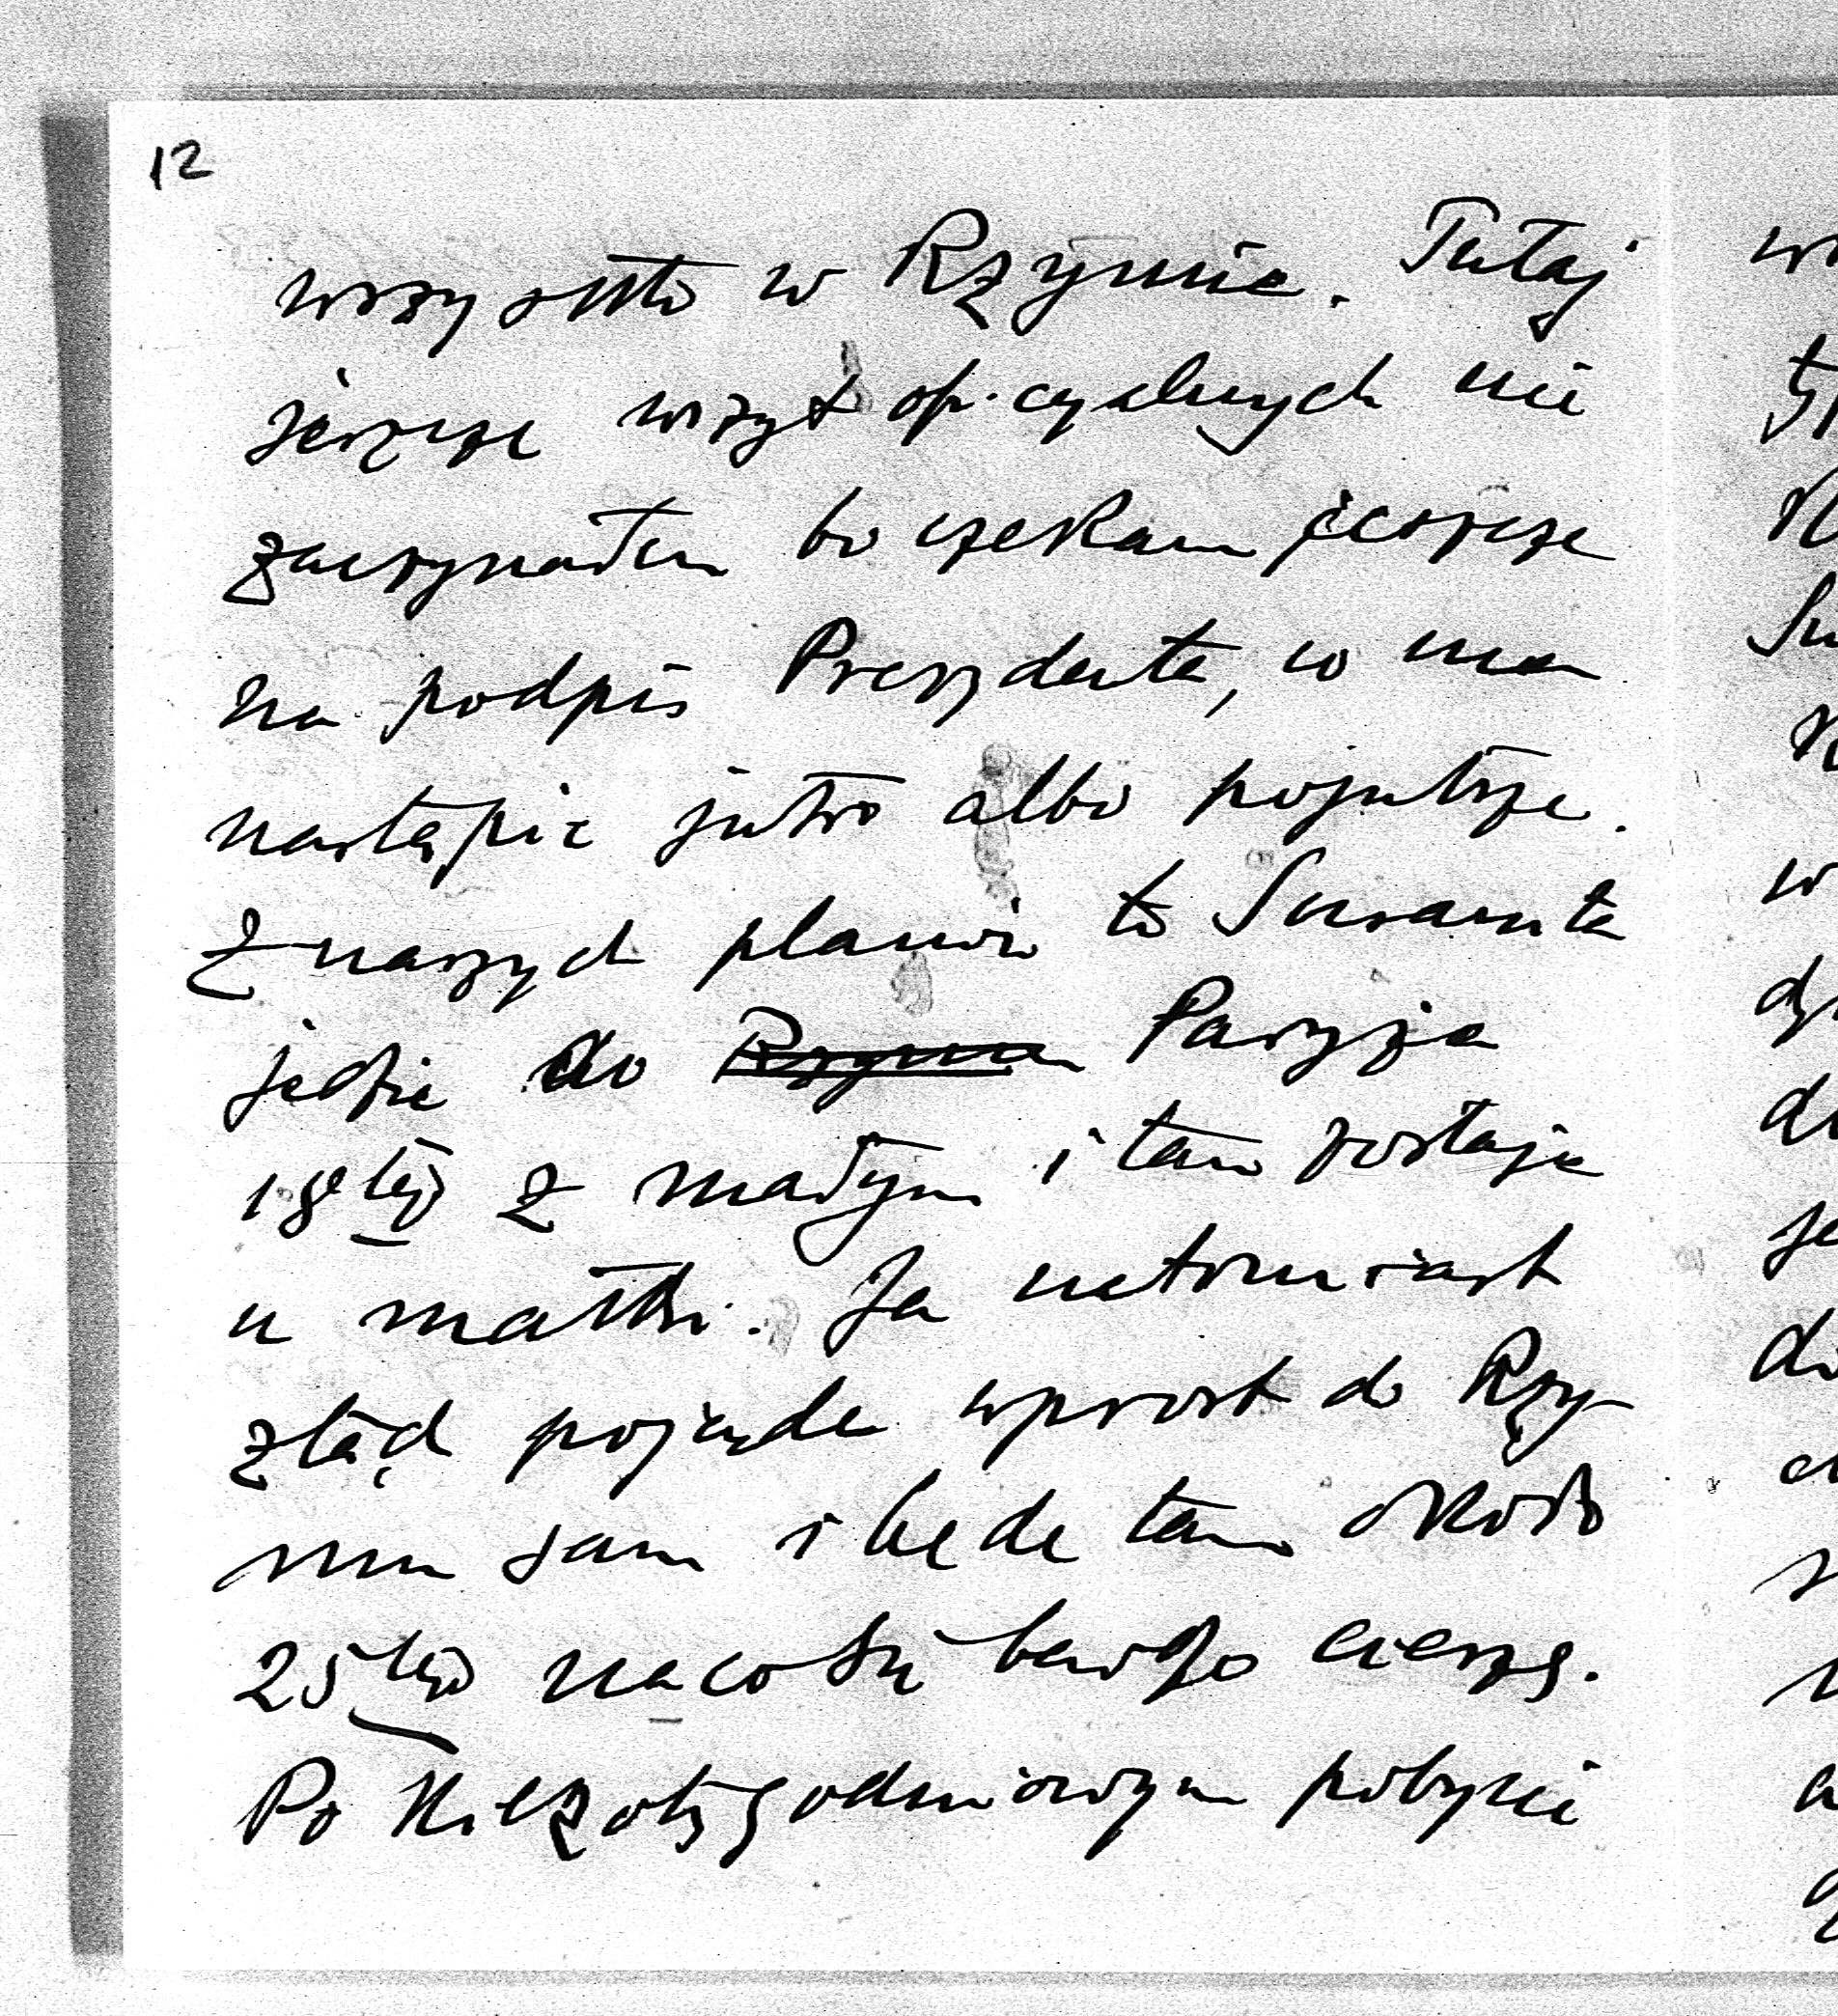 12
wszystko w Rzymie. Tutaj
jeszcze wizyt oficyalnych nie
zaczynałem bo czekam jeszcze
na podpis Prezydenta, co ma
nastąpić jutro albo pojutrze.
Z naszych planów to Susanita
jedzie do Rzyma Paryża
18tego z małym i tam zostaje
u matki. Ja natomiast
ztąd pojadę wprost do Rzy-
mu sam i będę tam około
25tego na co się bardzo cieszę.
Po kilkotygodniowym pobycie